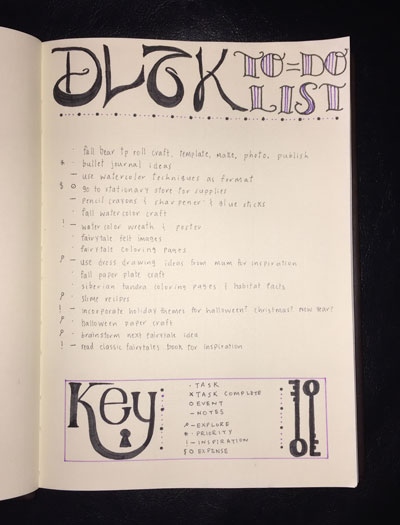 DLTK TO=DO LIST
· fall bear tp roll craft, template, make, photo, publish
* · bullet journal ideas
— use watercolor techniques as format
$ o go to stationary store for supplies
— pencil crayons & sharpener & glue sticks
· fall watercolor craft
! — watercolor wreath & poster
· fairytale felt images
· fairytale coloring pages
— use dress drawing ideas from mum for inspiration
· fall paper plate craft
· siberian tundra coloring pages & habitat facts
— slime recipes
! — incorporate holiday themes for halloween! christmas! new year!
· halloween paper craft
· brainstorm next fairytale idea
! — read classic fairytales book for inspiration
Key
· TASK
X TASK COMPLETE
O EVENT
— NOTES
— EXPLORE
* — PRIORITY
! — INSPIRATION
$ O EXPENSE